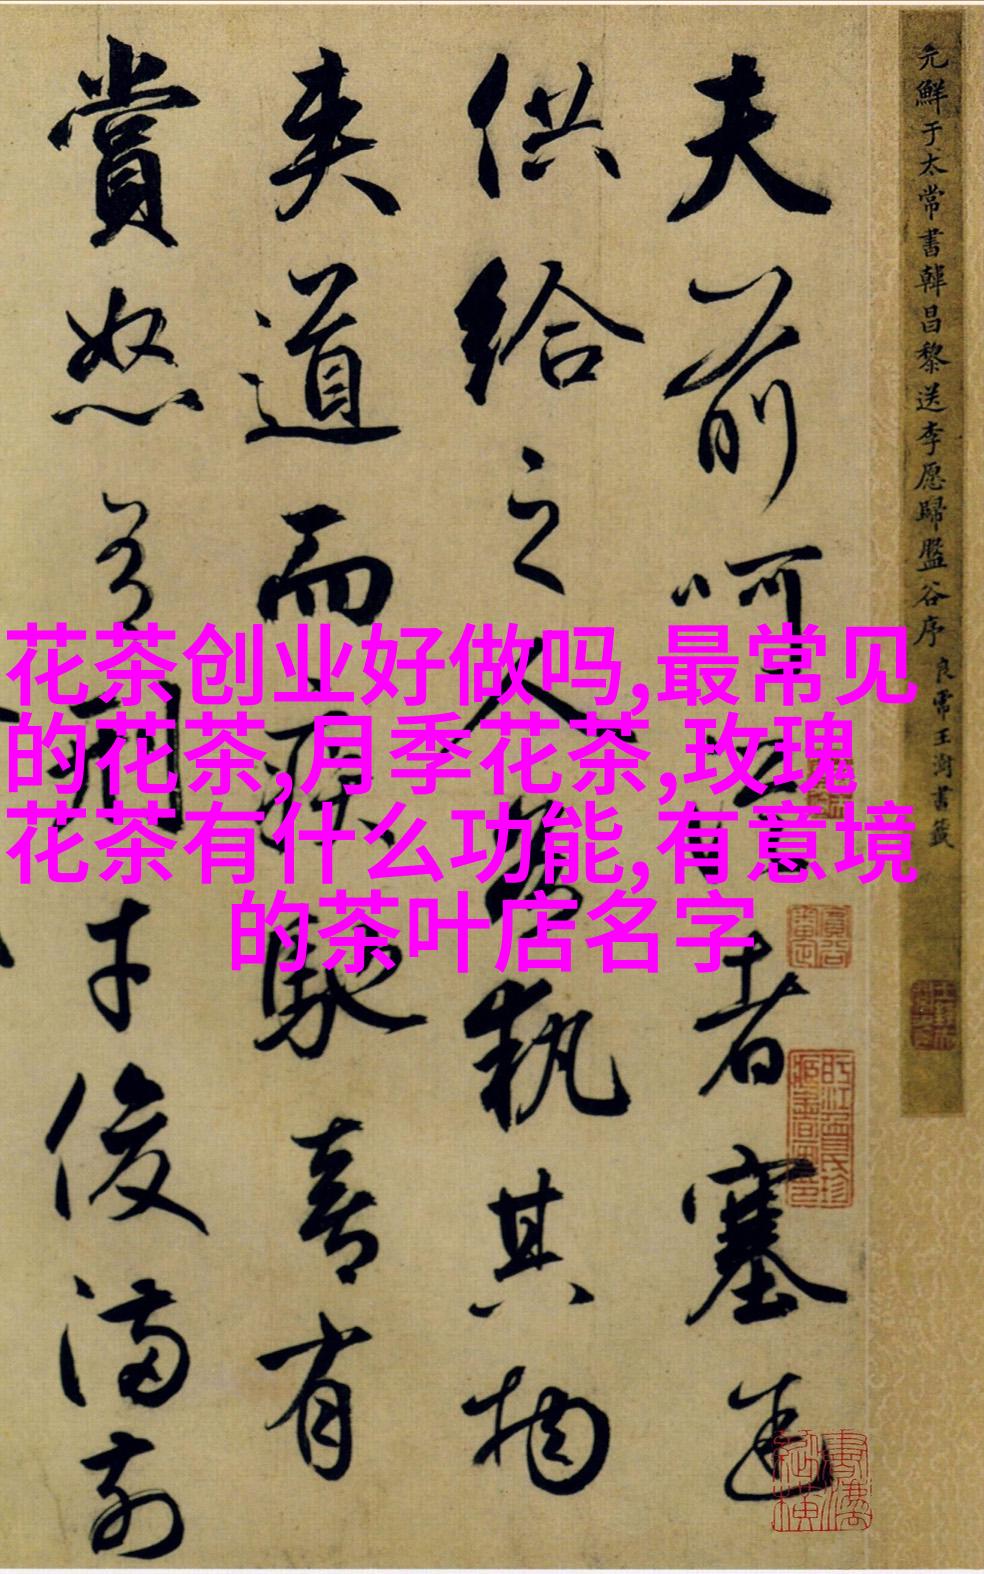 元鮮于太常書韓昌黎送李愿歸盤谷序 良常王澍書籤
夫前呵從者塞途
供給之人各執其物
夾道而疾馳喜有
賞怒有刑才俊滿前
花茶创业好做吗,最常见
的花茶,月季花茶,玫瑰
花茶有什么功能,有意境
的茶叶店名字